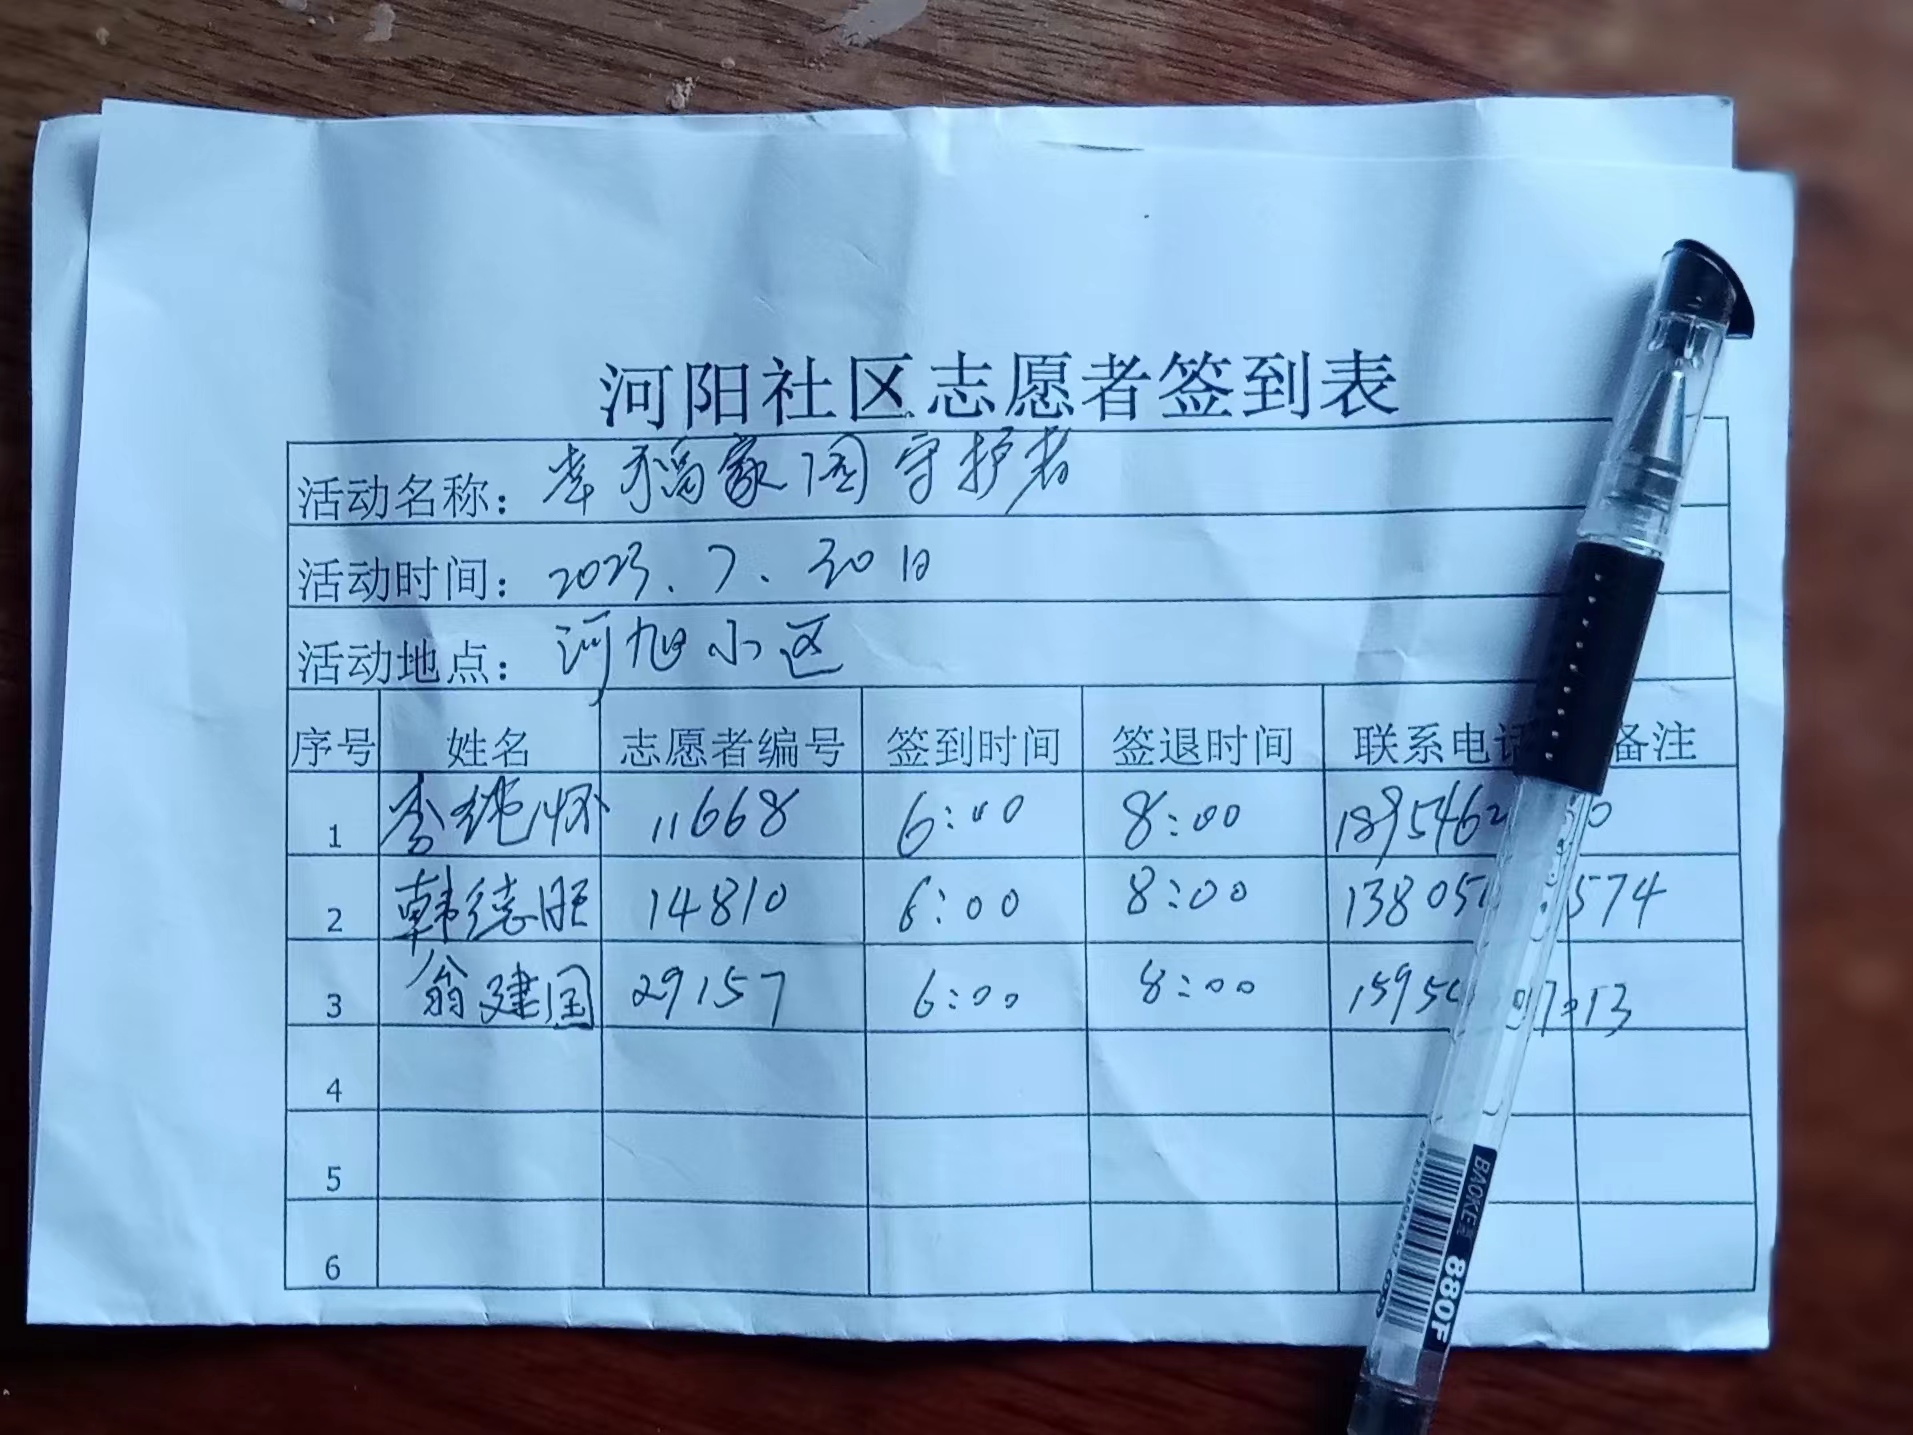 河阳社区志愿者签到表
活动名称：幸福家园守护者
活动时间：2023.7.30日
活动地点：河旭小区
序号 姓名 志愿者编号 签到时间 签退时间 联系电话 备注
1 李纯怀 11668 6:00 8:00 1895462 0
2 韩德旺 14810 6:00 8:00 13805 574
3 翁建国 29157 6:00 8:00 1595 7013
4
5
6
BAOKE 880F